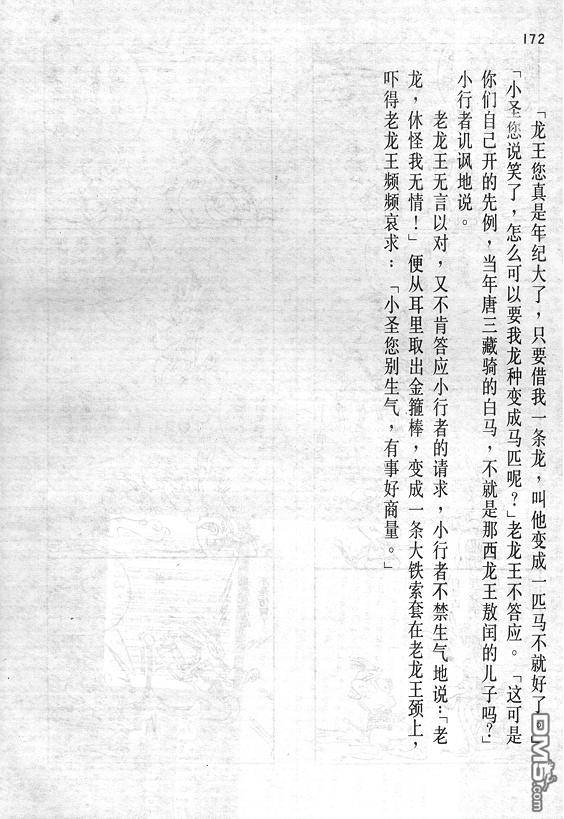 172
「龙王您真是年纪大了，只要借我一条龙，叫他变成一匹马不就好了
「小圣您说笑了，怎么可以要我龙种变成马匹呢？」老龙王不答应。「这可是
你们自己开的先例，当年唐三藏骑的白马，不就是那西龙王敖闰的儿子吗？」
小行者讥讽地说。
老龙王无言以对，又不肯答应小行者的请求，小行者不禁生气地说：「老
龙，休怪我无情！」便从耳里取出金箍棒，变成一条大铁索套在老龙王颈上，
吓得老龙王频频哀求：「小圣您别生气，有事好商量。」
DM5.com